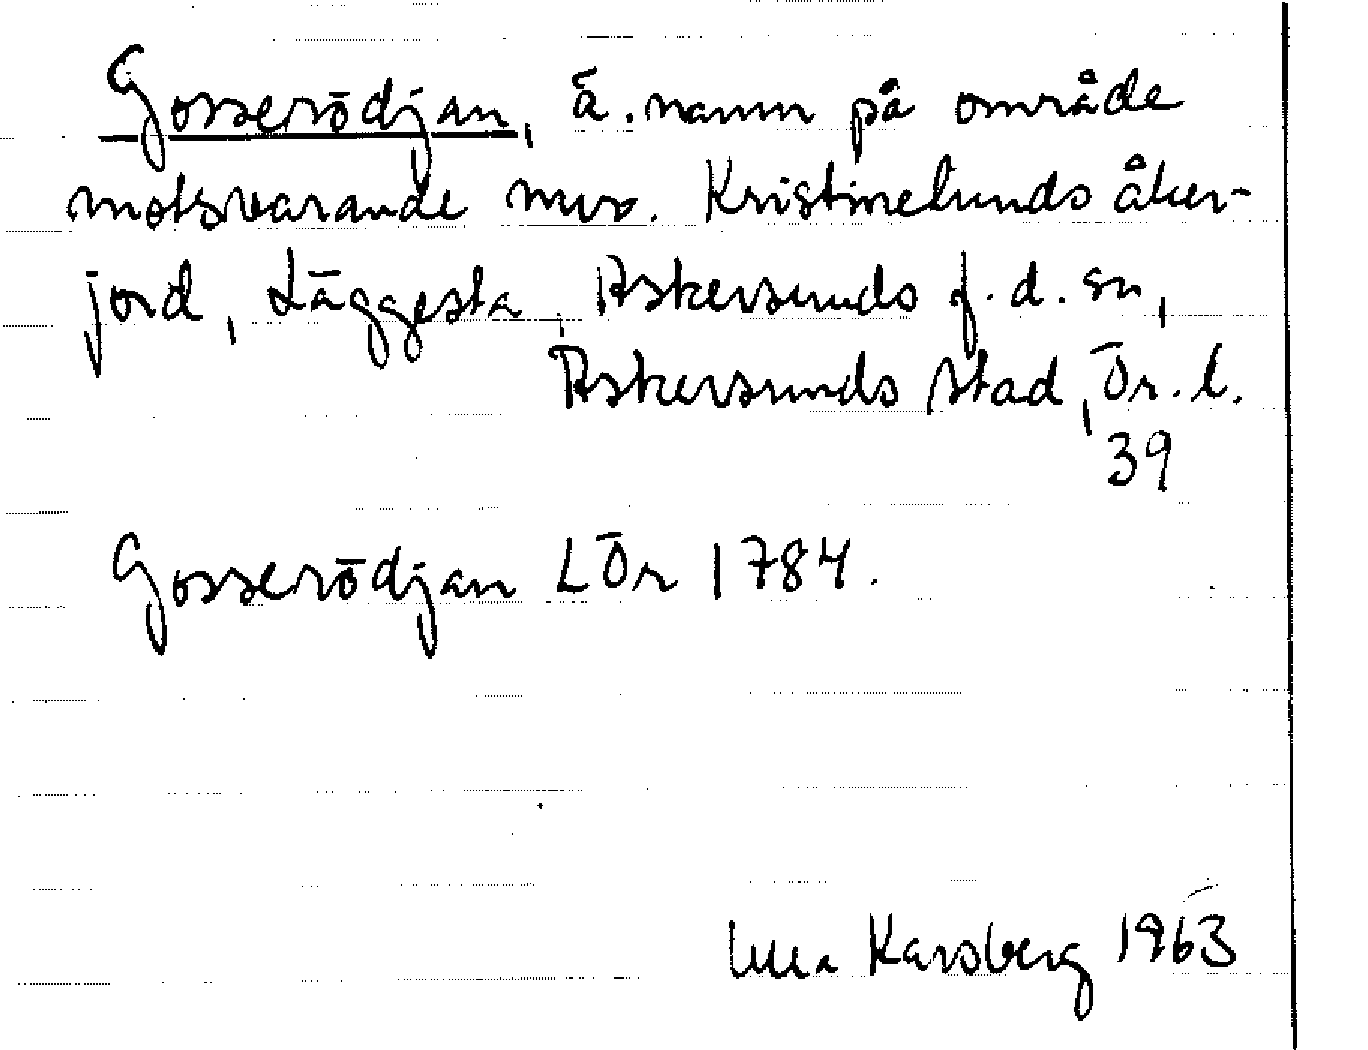 Gosserödjan, ä. namn på område
motsvarande nuv. Kristinelunds åker-
jord, Läggesta, Askersunds f.d. sn,
Askersunds stad, Ör. l.
39
Gosserödjan LÖr 1784.
Ulla Karsberg 1963